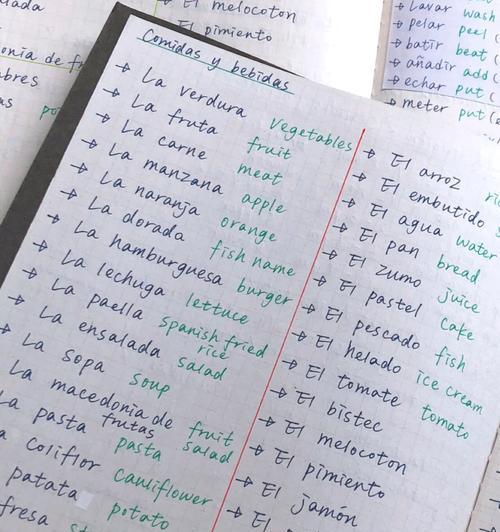 El melocoton
El pimiento
lavar wash
pelar peel
batir beat
añadir add
echar put
meter put
Comidas y bebidas
→ La verdura vegetables
→ La fruta fruit
→ La carne meat
→ La manzana apple
→ La naranja orange
→ La dorada fish name
→ La hamburguesa burger
→ La lechuga lettuce
→ La paella spanish fried rice
→ La ensalada salad
→ La sopa soup
La macedonia de frutas fruit salad
La pasta pasta
coliflor cauliflower
patata potato
fresa
→ El arroz
→ El embutido
→ El agua water
→ El pan bread
→ El zumo juice
→ El pastel cake
→ El pescado fish
→ El helado ice cream
→ El tomate tomato
→ El bistec
→ El melocoton
→ El pimiento
→ El jamón